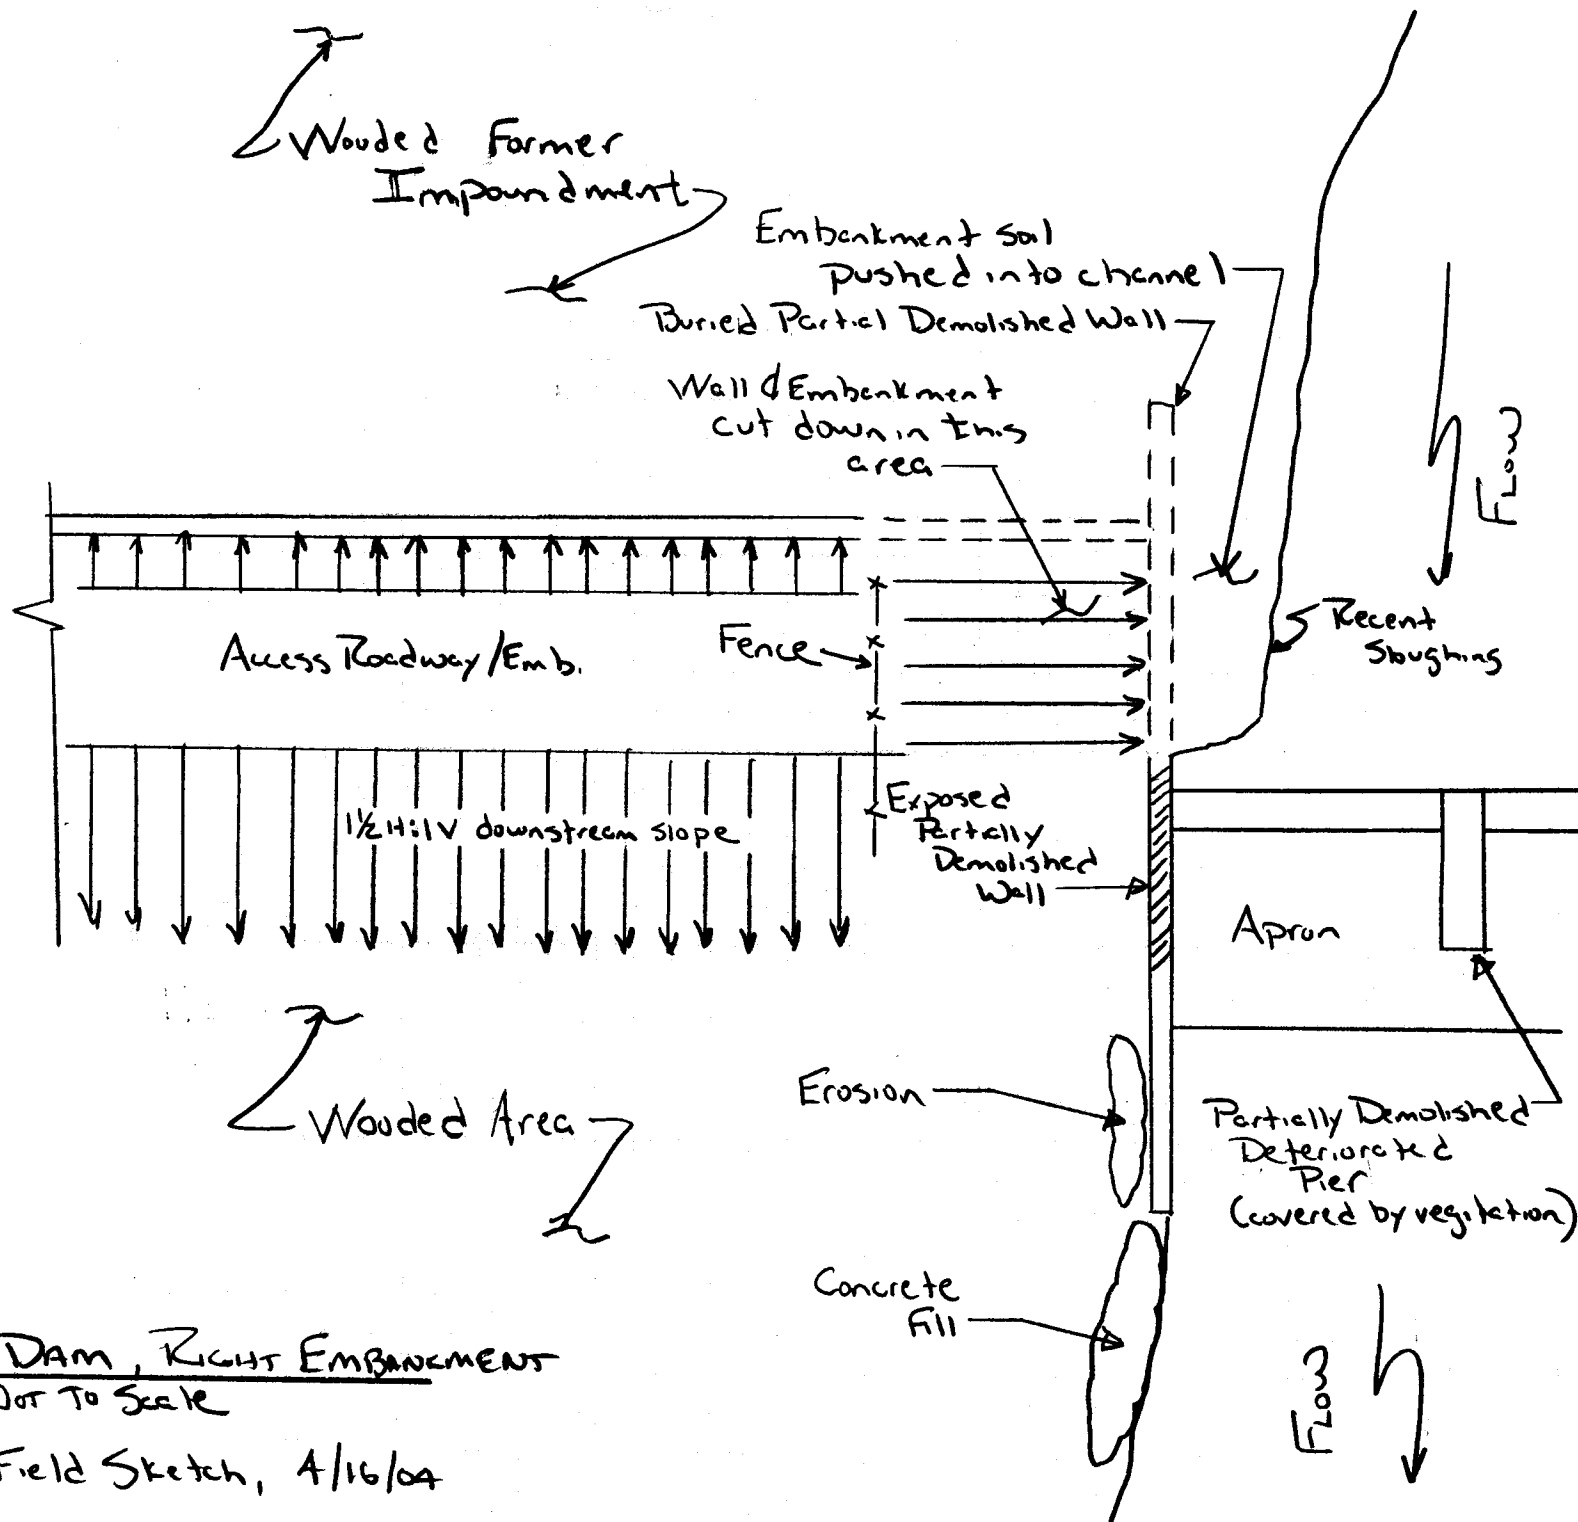 Wouded Former
Impoundment
Embankment Soil
pushed into channel
Buried Partial Demolished Wall
Wall & Embankment
cut down in this
area
Flow
Recent
Sloughing
Access Roadway/Emb.
Fence
1½H:1V downstream slope
Exposed
Partially
Demolished
Wall
Apron
Erosion
Wouded Area
Partially Demolished
Deteriorated
Pier
(covered by vegitation)
Concrete
Fill
Flow
DAM, RIGHT EMBANKMENT
Not To Scale
Field Sketch, 4/16/04